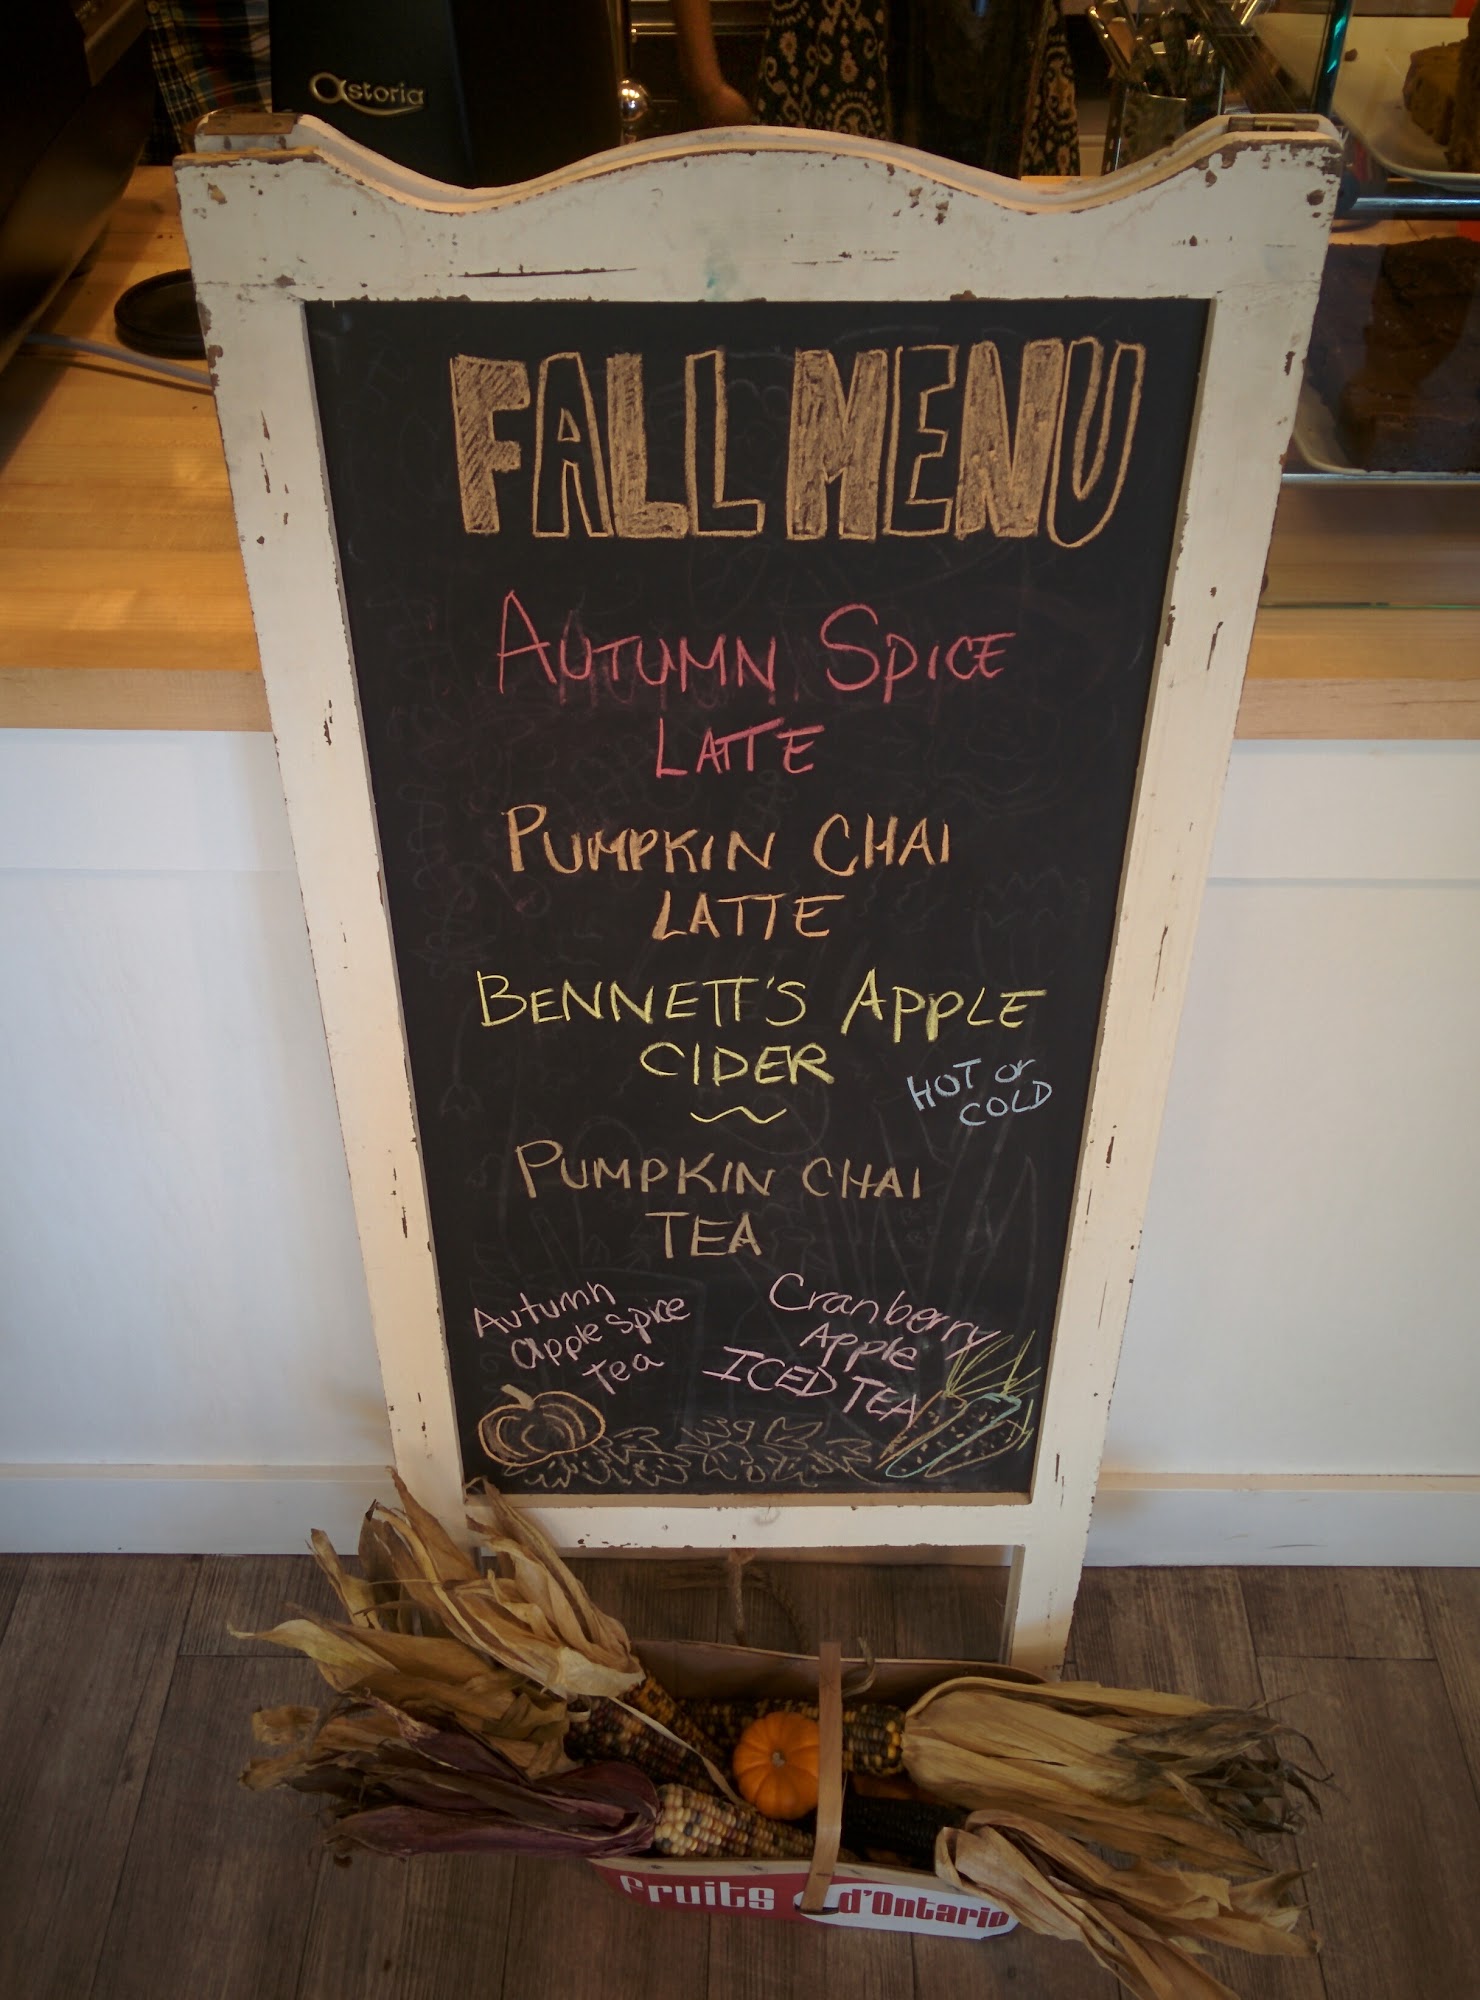 astoria
FALL MENU
AUTUMN SPICE
LATTE
PUMPKIN CHAI
LATTE
BENNETT'S APPLE
CIDER
HOT or
COLD
PUMPKIN CHAI
TEA
Autumn
apple spice
tea
Cranberry
Apple
ICED TEA
fruits d'Ontario